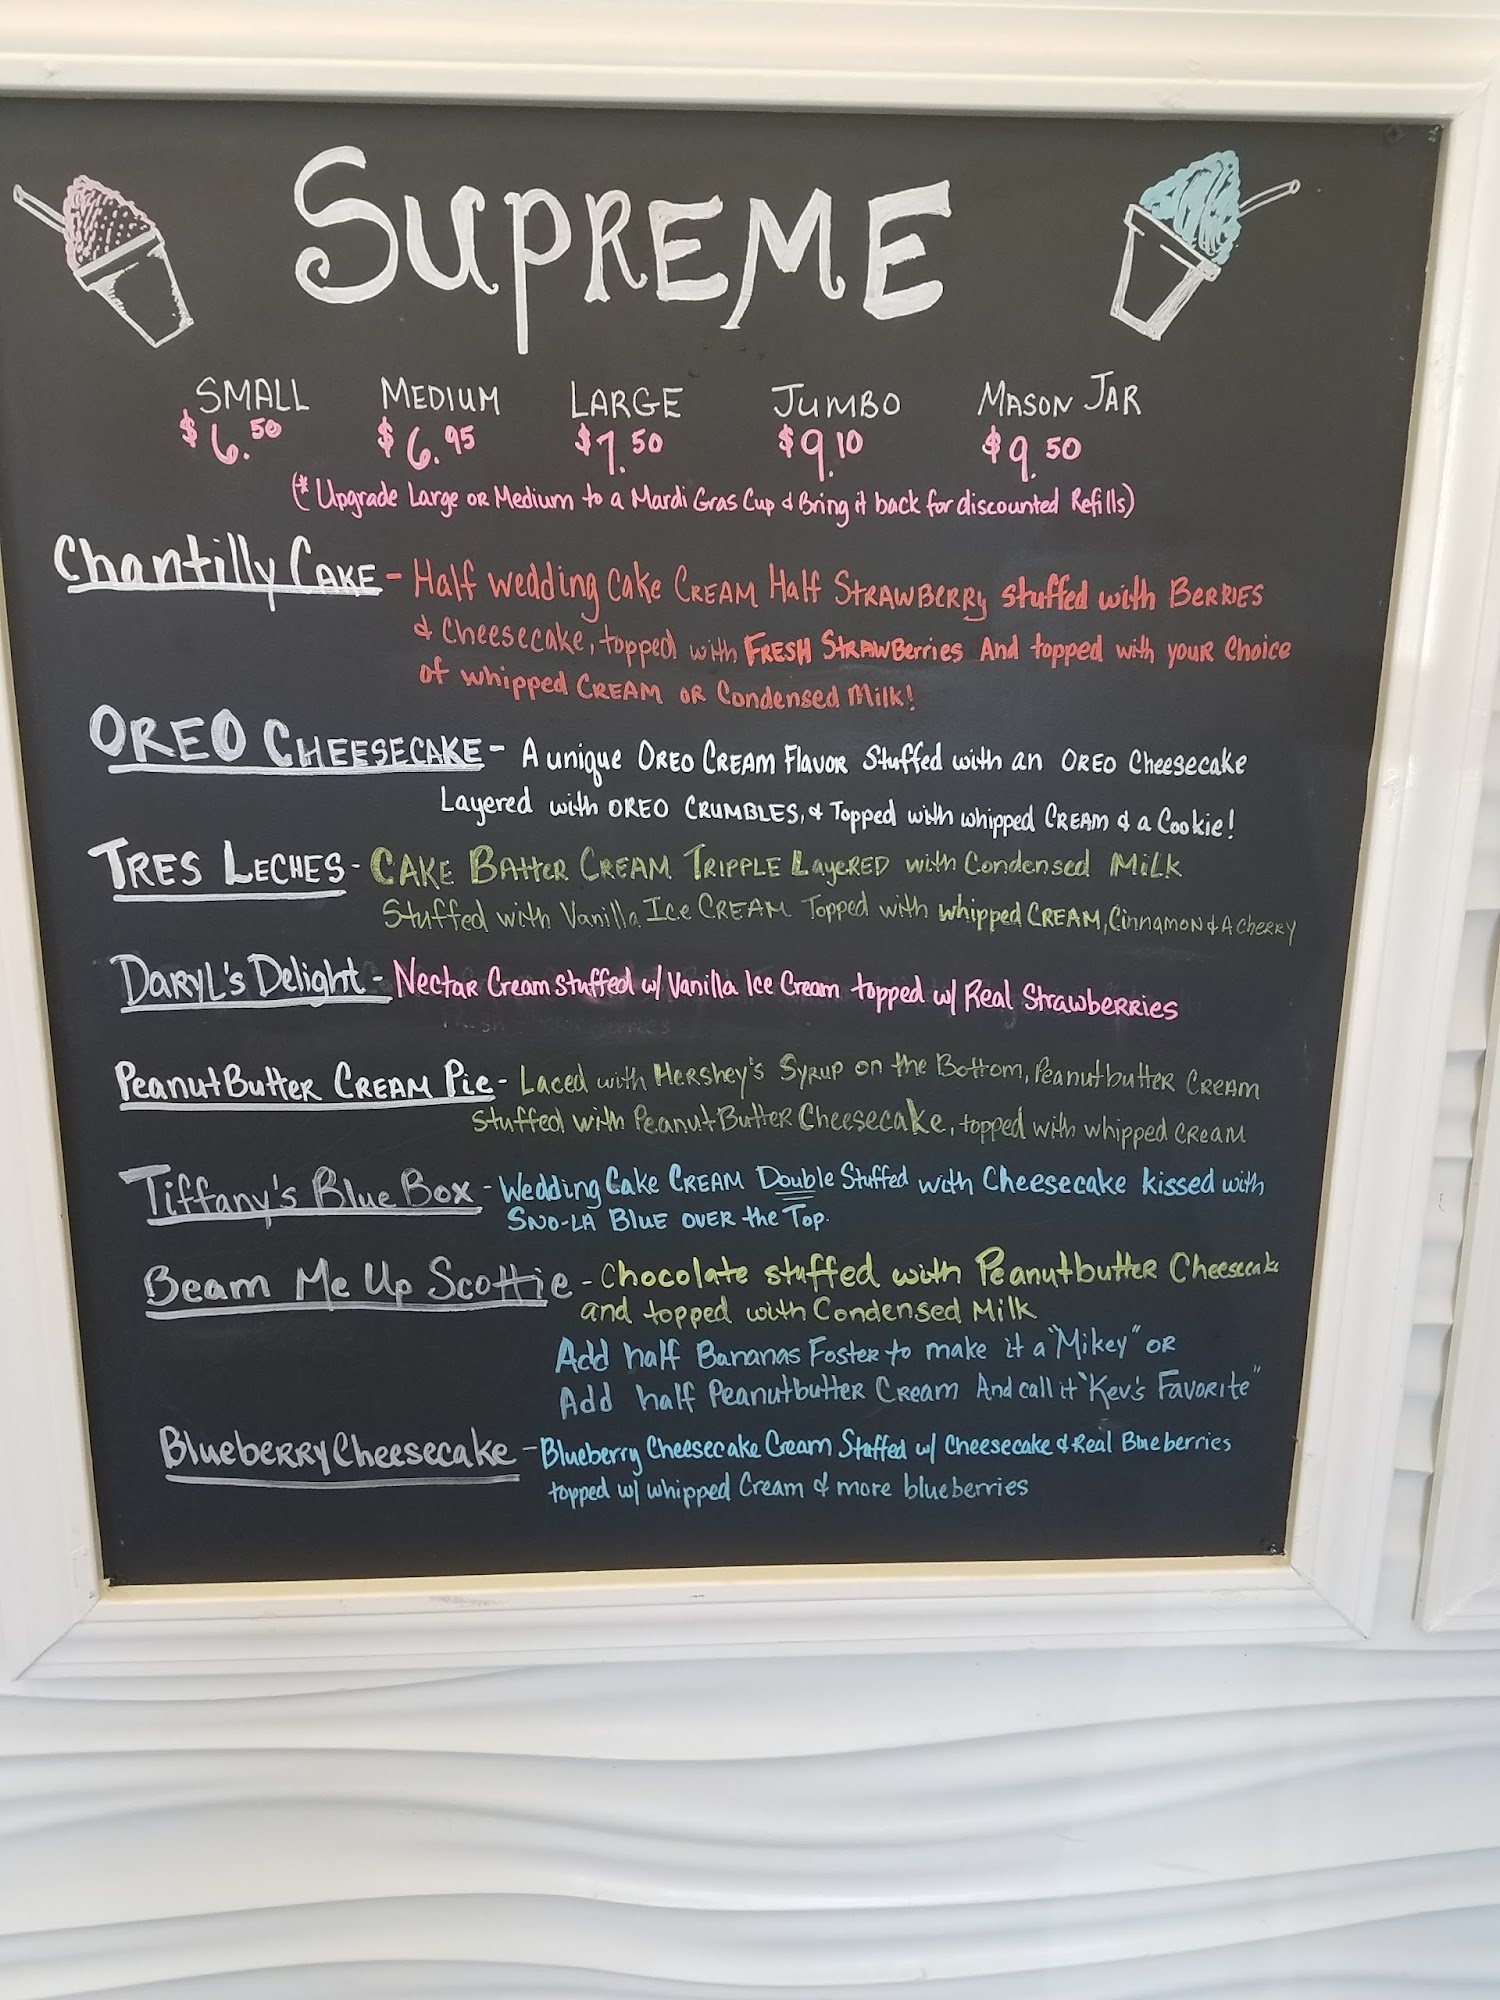 SUPREME
SMALL MEDIUM LARGE JUMBO MASON JAR
$6.50 $6.95 $7.50 $9.10 $9.50
(* Upgrade Large or Medium to a Mardi Gras Cup & Bring it back for discounted Refills)
Chantilly CAKE - Half wedding Cake CREAM Half STRAWBERRY stuffed with BERRIES
& Cheesecake, topped with FRESH STRAWBerries And topped with your Choice
of whipped CREAM OR Condensed Milk!
OREO CHEESECAKE - A unique OREO CREAM FLAVOR Stuffed with an OREO Cheesecake
Layered with OREO CRUMBLES, & Topped with whipped CREAM & a Cookie!
TRES LECHES - CAKE BATTER CREAM TRIPPLE LAYERED with Condensed MILK
Stuffed with Vanilla ICE CREAM Topped with whipped CREAM, Cinnamon & A CHERRY
DARYL'S Delight - Nectar Cream stuffed w/ Vanilla Ice Cream topped w/ Real Strawberries
PeanutButter CREAM Pie - Laced with HERSHEY'S SYRUP on the Bottom, Peanutbutter CREAM
Stuffed with PeanutButter Cheesecake, topped with whipped CREAM
Tiffany's Blue Box - Wedding Cake CREAM Double Stuffed with Cheesecake kissed with
SNO-LA BLUE OVER the TOP.
Beam Me Up Scottie - Chocolate stuffed with Peanutbutter Cheesecake
and topped with Condensed Milk
Add half Bananas Foster to make it a "Mikey" OR
Add half Peanutbutter Cream And call it "Kev's FAVORITE"
BlueberryCheesecake - Blueberry Cheesecake Cream Stuffed w/ Cheesecake & Real Blueberries
topped w/ whipped Cream & more blueberries